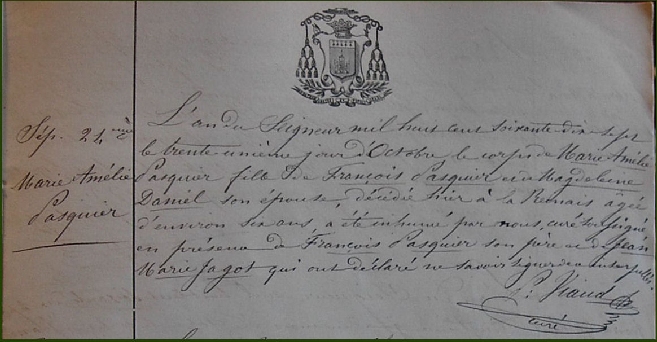 Sép. 24ème
Marie Amélie
Pasquier
L'an du Seigneur mil huit cent soixante dix sept
le trente unième jour d'Octobre le corps de Marie Amélie
Pasquier fille de François Pasquier et de Magdeleine
Daniel son épouse, décédée hier à la agée
d'environ six ans, a été inhumé par nous, curé soussigné
en présence de François Pasquier son père et de Jean
Marie Jagot qui ont déclaré ne savoir signer de ce
P. Viaud
curé